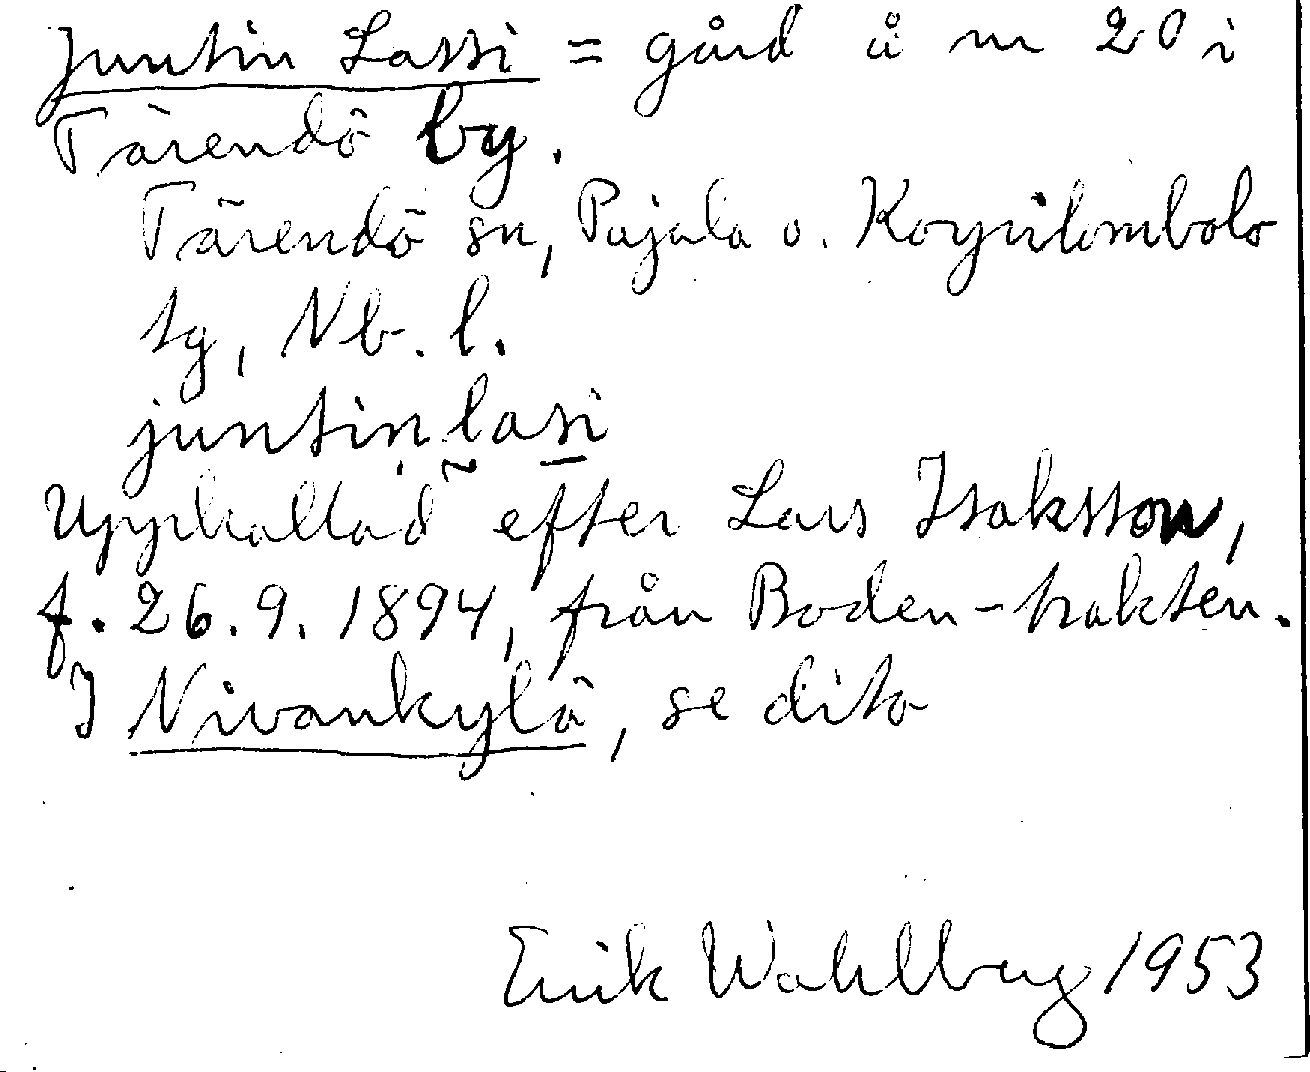 Juntin Lassi = gård å nr 20 i
Tärendö by.
Tärendö sn, Pajala o. Korpilombolo
tg, Nb. l.
juntin lasi
Uppkallad efter Lars Isaksson,
f. 26.9.1894, från Boden-trakten.
I Nivankylä, se dito
Erik Wahlberg 1953